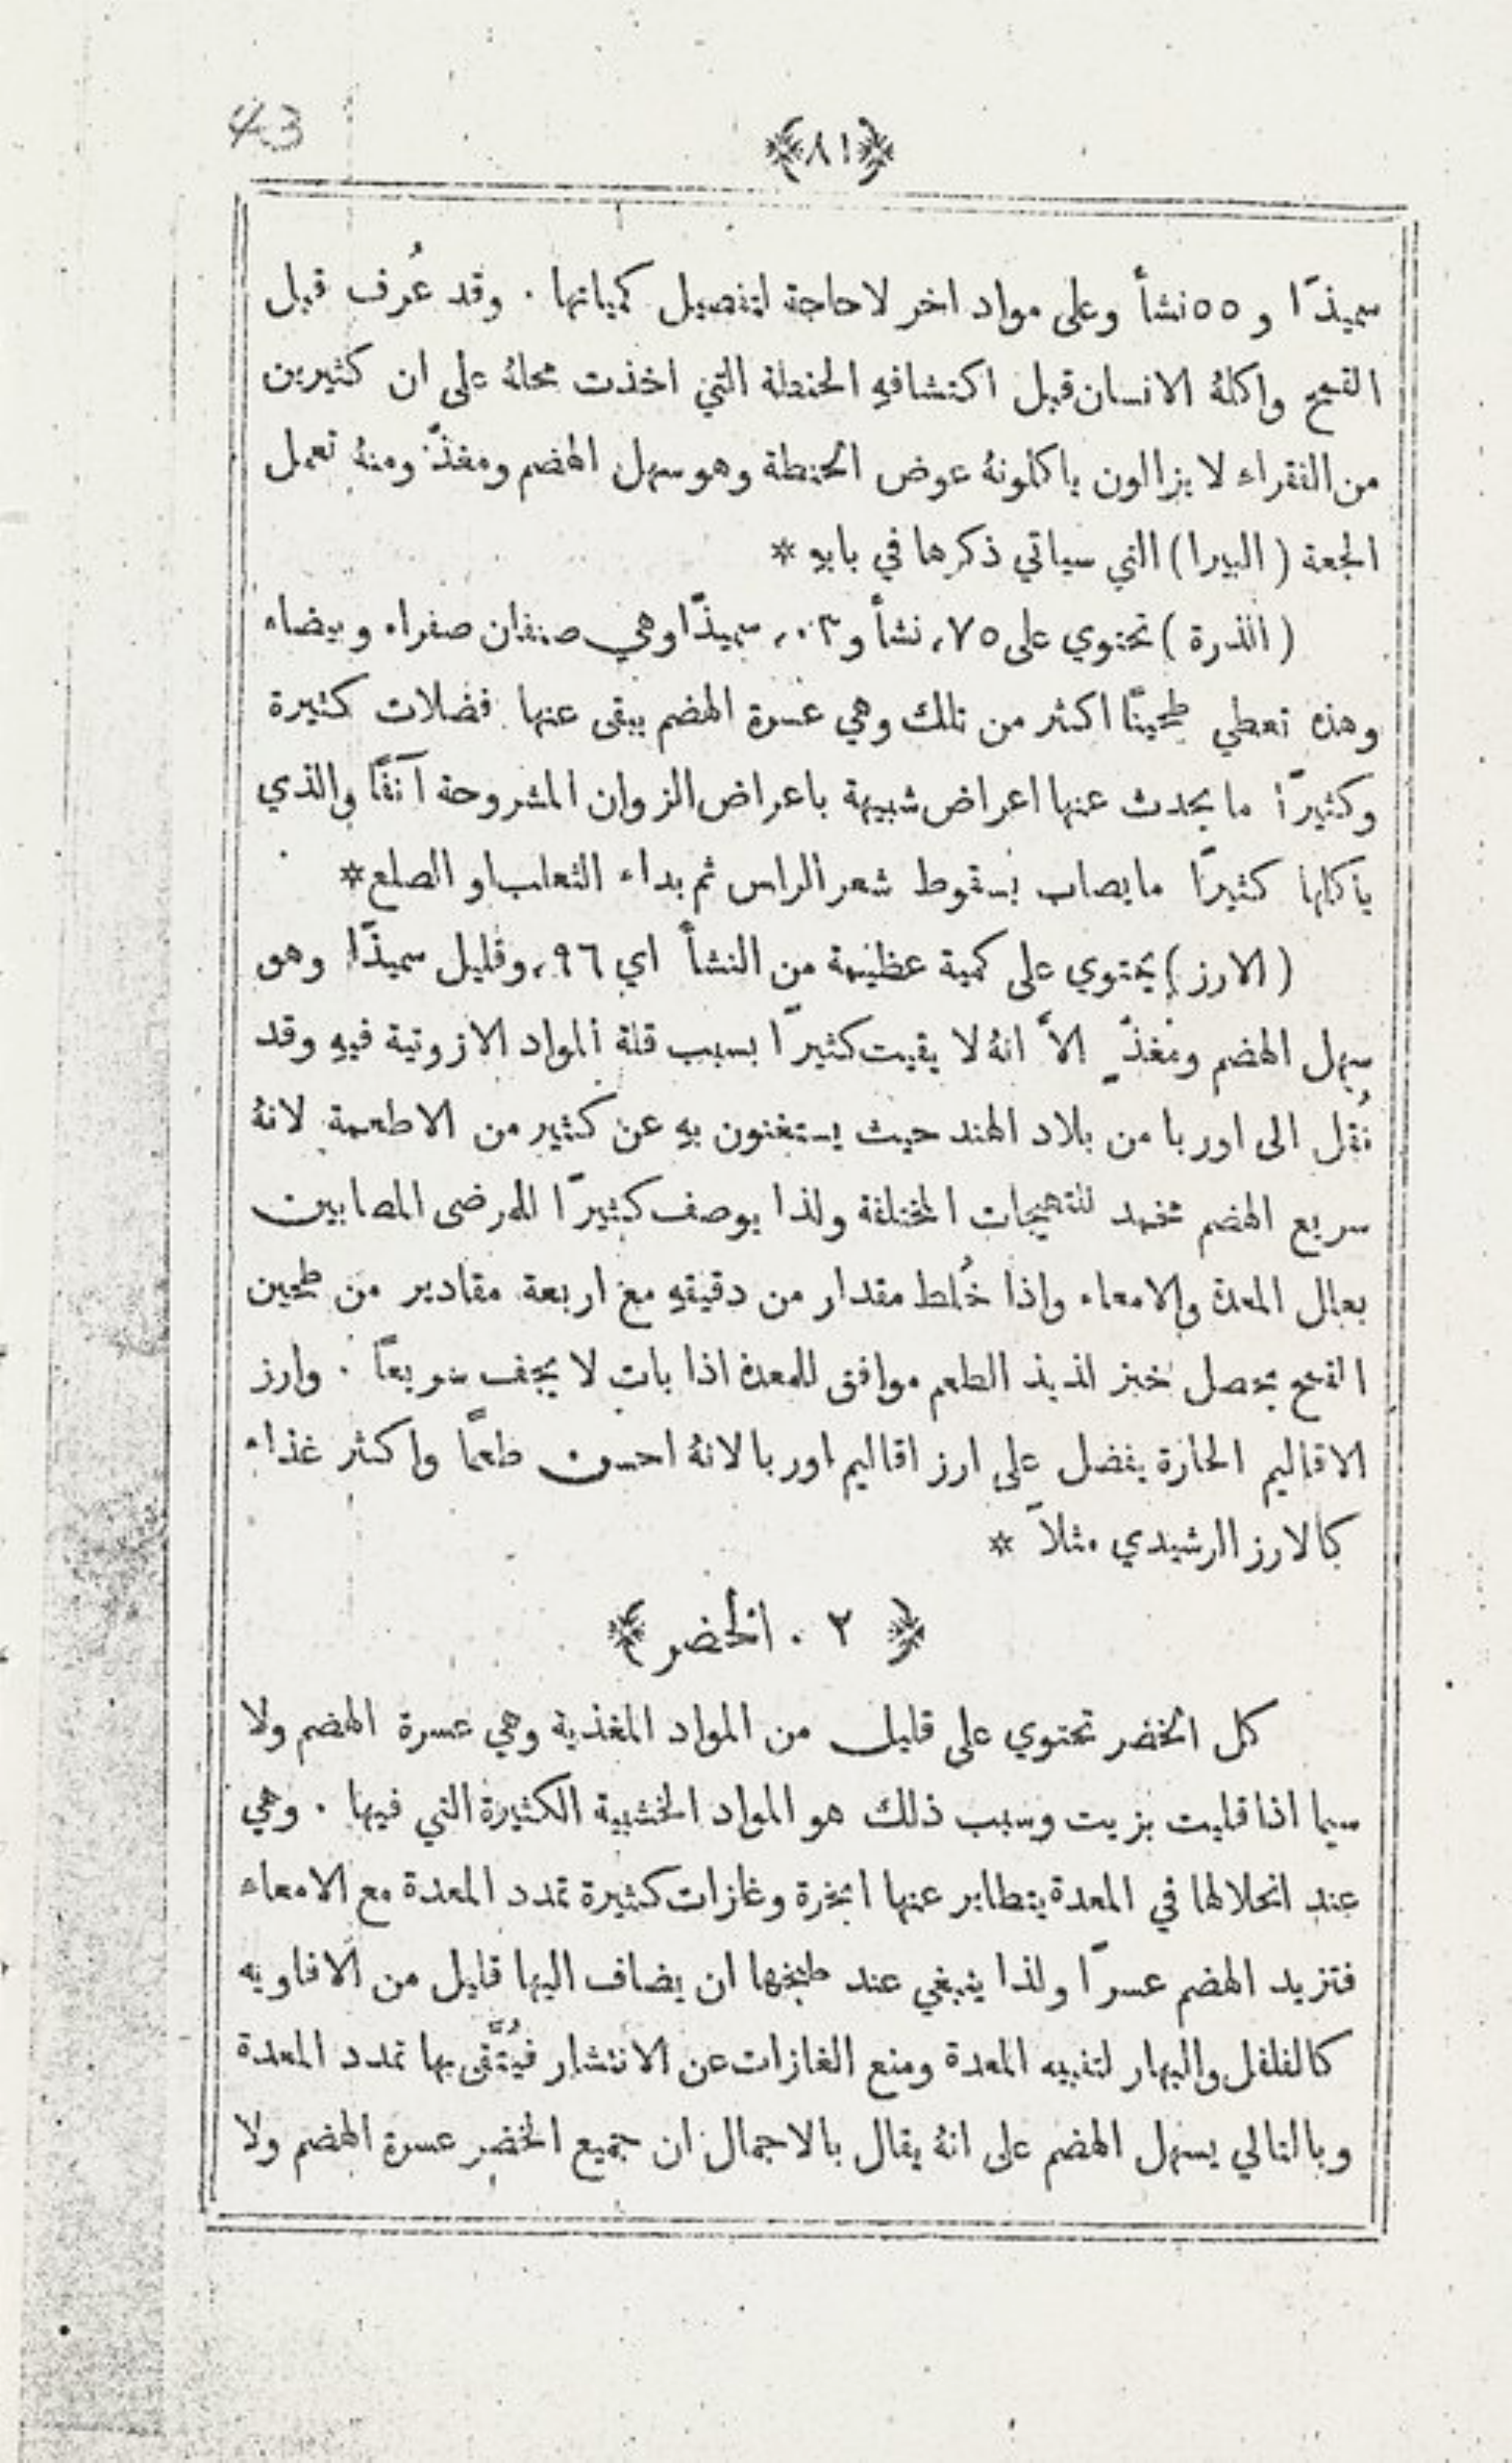 43
﴿٨١﴾
سميذًا و ٥٥ نشأ وعلى مواد اخر لا حاجة لتفصيل كمياتها . وقد عُرف قبل
القمح واكلهُ الانسان قبل اكتشافهِ الحنطة التي اخذت محلهُ على ان كثيرين
من الفقراء لا يزالون ياكلونهُ عوض الحنطة وهو سهل الهضم ومغذّ ومنهُ تعمل
الجعة ( البيرا ) التي سياتي ذكرها في بابهِ *
( الذرة ) تحتوي على ٧٥, نشأ و ٠٣, سميذًا وهي صنفان صفراء وبيضاء
وهذه تعطي طحينًا اكثر من تلك وهي عسرة الهضم يبقى عنها فضلات كثيرة
وكثيرًا ما يحدث عنها اعراض شبيهة باعراض الزوان المشروحة آنفًا والذي
ياكلها كثيرًا ما يصاب بسقوط شعر الراس ثم بداء الثعلب او الصلع *
( الارز ) يحتوي على كمية عظيمة من النشأ اي ٩٦, وقليل سميذًا وهو
سهل الهضم ومغذٍّ الاَّ انهُ لا يقيت كثيرًا بسبب قلة المواد الازوتية فيهِ وقد
نُقل الى اوربا من بلاد الهند حيث يستغنون بهِ عن كثير من الاطعمة لانهُ
سريع الهضم مخمد للتهيجات المختلفة ولذا يوصف كثيرًا للمرضى المصابين
بعلل المعدة والامعاء واذا خُلط مقدار من دقيقهِ مع اربعة مقادير من طحين
القمح يحصل خبز لذيذ الطعم موافق للمعدة اذا بات لا يجف سريعًا . وارز
الاقاليم الحارة يفضل على ارز اقاليم اوربا لانهُ احسن طعمًا واكثر غذاء
كالارز الرشيدي مثلاً *
﴿ ٢ . الخضر ﴾
كل الخضر تحتوي على قليل من المواد المغذية وهي عسرة الهضم ولا
سيما اذا قليت بزيت وسبب ذلك هو المواد الخشبية الكثيرة التي فيها . وهي
عند انحلالها في المعدة يتطاير عنها ابخرة وغازات كثيرة تمدد المعدة مع الامعاء
فتزيد الهضم عسرًا ولذا ينبغي عند طبخها ان يضاف اليها قليل من الافاويه
كالفلفل والبهار لتنبيه المعدة ومنع الغازات عن الانتشار فيُتَّقى بها تمدد المعدة
وبالتالي يسهل الهضم على انهُ يقال بالاجمال ان جميع الخضر عسرة الهضم ولا